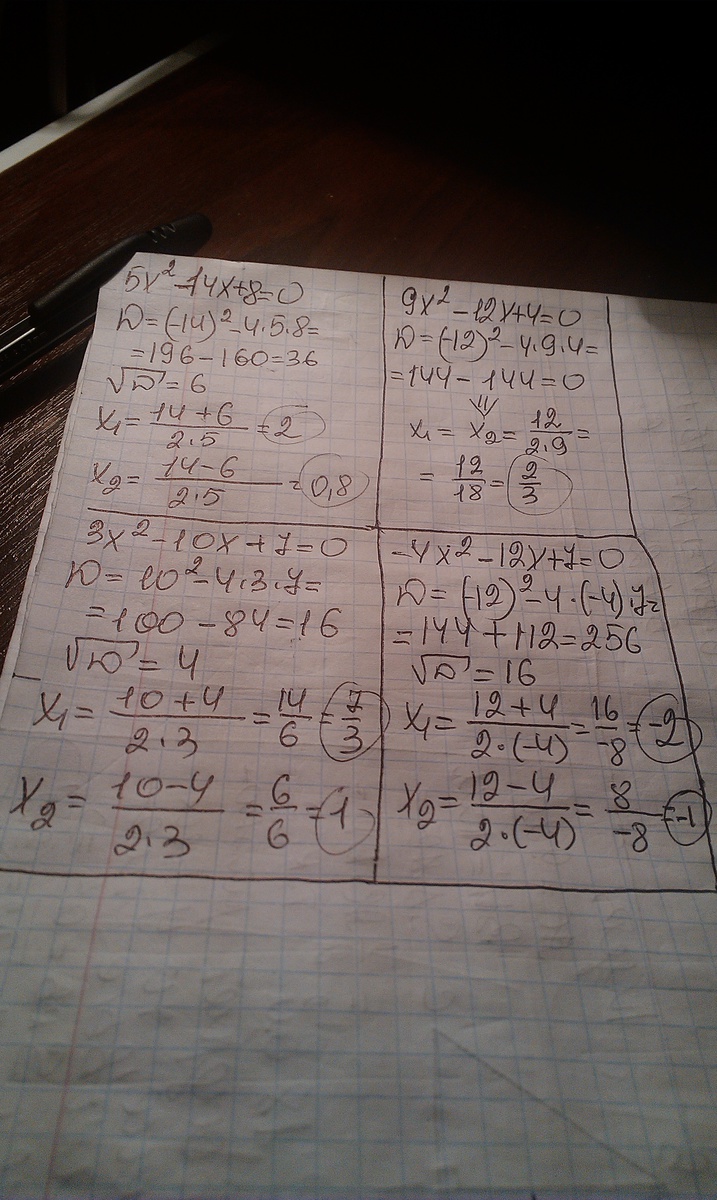 5x² - 14x + 8 = 0
D = (-14)² - 4·5·8 =
= 196 - 160 = 36
√D = 6
x₁ = (14 + 6)/(2·5) = 2
x₂ = (14 - 6)/(2·5) = 0,8
9x² - 12x + 4 = 0
D = (-12)² - 4·9·4 =
= 144 - 144 = 0
⇓
x₁ = x₂ = 12/(2·9) =
= 12/18 = 2/3
3x² - 10x + 7 = 0
D = 10² - 4·3·7 =
= 100 - 84 = 16
√D = 4
x₁ = (10 + 4)/(2·3) = 14/6 = 7/3
x₂ = (10 - 4)/(2·3) = 6/6 = 1
-4x² - 12x + 7 = 0
D = (-12)² - 4·(-4)·7 =
= 144 + 112 = 256
√D = 16
x₁ = (12 + 4)/(2·(-4)) = 16/-8 = -2
x₂ = (12 - 4)/(2·(-4)) = 8/-8 = -1